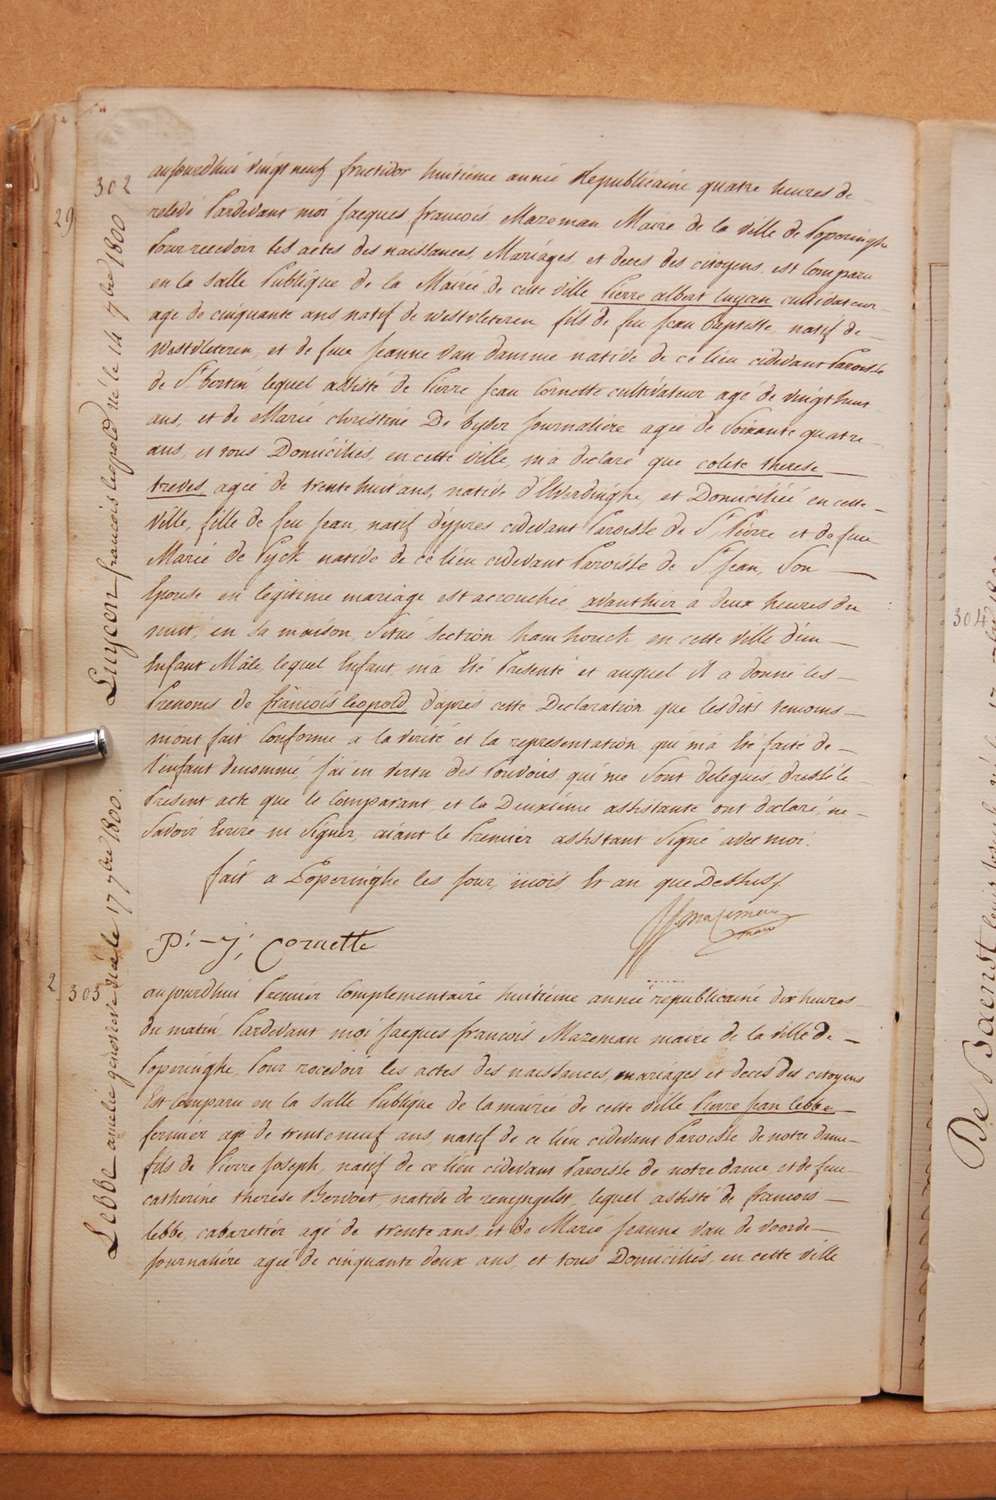 302
29
aujourdhui vingt neuf fructidor huitieme année Republicaine quatre heures de
relevé Pardevant moi Jacques francois Mazeman Maire de la ville de Poperinghe
Pour recevoir les actes des naissances, Mariages, et deces des citoyens, est Comparu
en la salle Publique de la Mairie de cette ville Pierre albert Luyçen cultivateur
agé de cinquante ans natif de westvleteren, fils de feu Jean Baptiste natif de
Westvleteren, et de feue Jeanne Van damme native de ce lieu cidevant Paroisse
de St bertin lequel assisté de Pierre Jean Cornette cultivateur agé de vingt huit
ans, et de Marie christine De byser Journaliere agée de Soixante quatre
ans, et tous Domiciliés, en cette ville, m'a declaré que colete therese
treves agée de trente huit ans, native d'Elverdinghe, et Domiciliée en cette
ville, fille de feu Jean, natif d'ypres cidevant Paroisse de St Pierre et de feue
Marie de Pyck native de ce lieu cidevant Paroisse de St Jean, Son
Epouse en légitime mariage est accouchée avanthier a deux heures du
nuit, en sa maison, Situé Section hamhouck, en cette ville d'un
Enfant Mâle, lequel Enfant, m'a Eté Presenté et auquel Il a donné les
Prenoms de francois leopold, d'après cette Declaration que lesdits temoins
m'ont fait Conforme a la verité et la representation qui m'a Eté faite de
l'enfant denommé, J'ai en vertu des Pouvoirs qui me Sont delegués, dressé le
Present acte que le Comparant et la Deuxième assistante ont declaré, ne
Savoir Ecrire ni Signer, aiant le Premier assistant Signé avec moi.
fait a Poperinghe les Jour, mois Et an que Dessus
JJ Mazeman
maire
P: - J: Cornette
Luyçen francois leopold né le 14 7bre 1800
2
303
aujourdhui Premier Complementaire huitième année republicaine dix heures
du matin, Pardevant moi Jacques francois Mazeman maire de la ville de
Poperinghe, Pour recevoir les actes des naissances, mariages et deces des citoyens
Est Comparu en la salle Publique de la mairie de cette ville Pierre Jean Lebbe
fermier agé de trente neuf ans, natif de ce lieu cidevant Paroisse de notre dame
fils de Pierre Joseph, natif de ce lieu cidevant Paroisse de notre dame, et de feu
catherine therese Bervoet, native de renyngelst, lequel assisté de francois
lebbe, cabaretier agé de trente ans, et de Marie Jeanne van de voorde
Journaliere agée de cinquante deux ans, et tous Domiciliés, en cette ville
Lebbe amelie genevieve née le 17 7bre 1800.
304
De Baenst